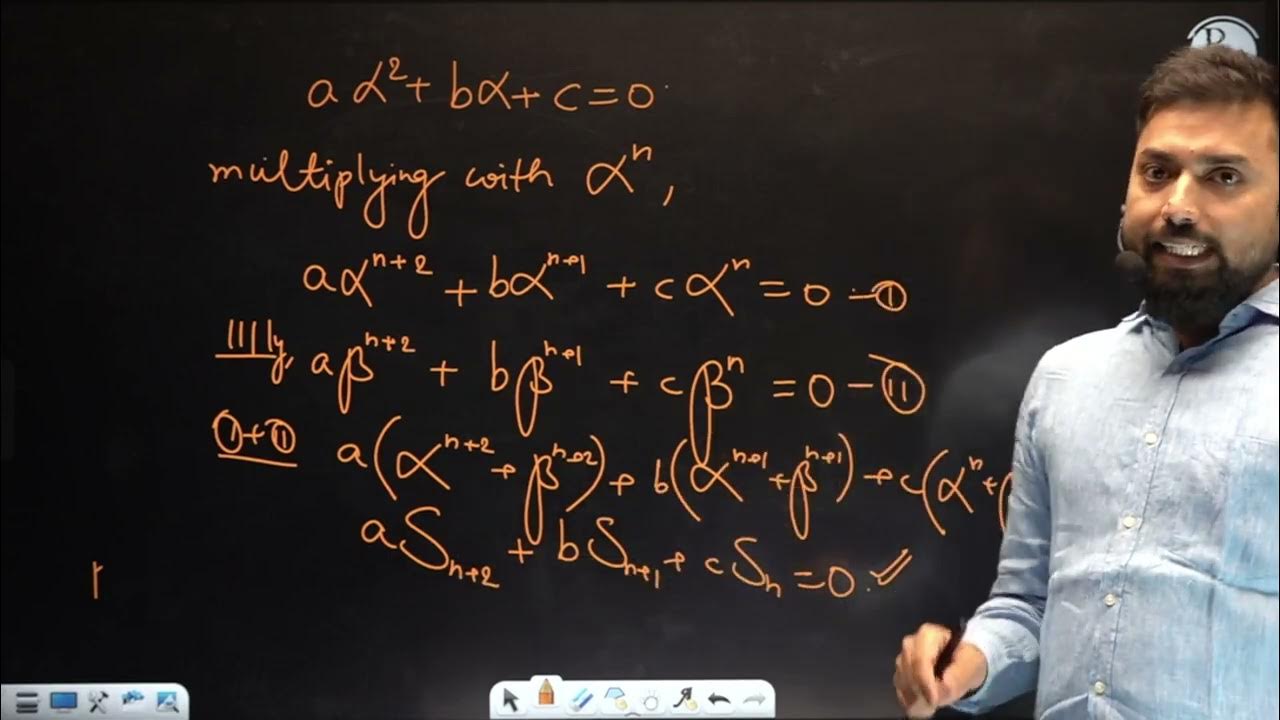 aα² + bα + c = 0
multiplying with αⁿ,
aαⁿ⁺² + bαⁿ⁺¹ + cαⁿ = 0 – ①
llllly, aβⁿ⁺² + bβⁿ⁺¹ + cβⁿ = 0 – ⑪
①+⑪ a(αⁿ⁺² + βⁿ⁺²) + b(αⁿ⁺¹ + βⁿ⁺¹) + c(αⁿ +
aSₙ₊₂ + bSₙ₊₁ + cSₙ = 0 ✓